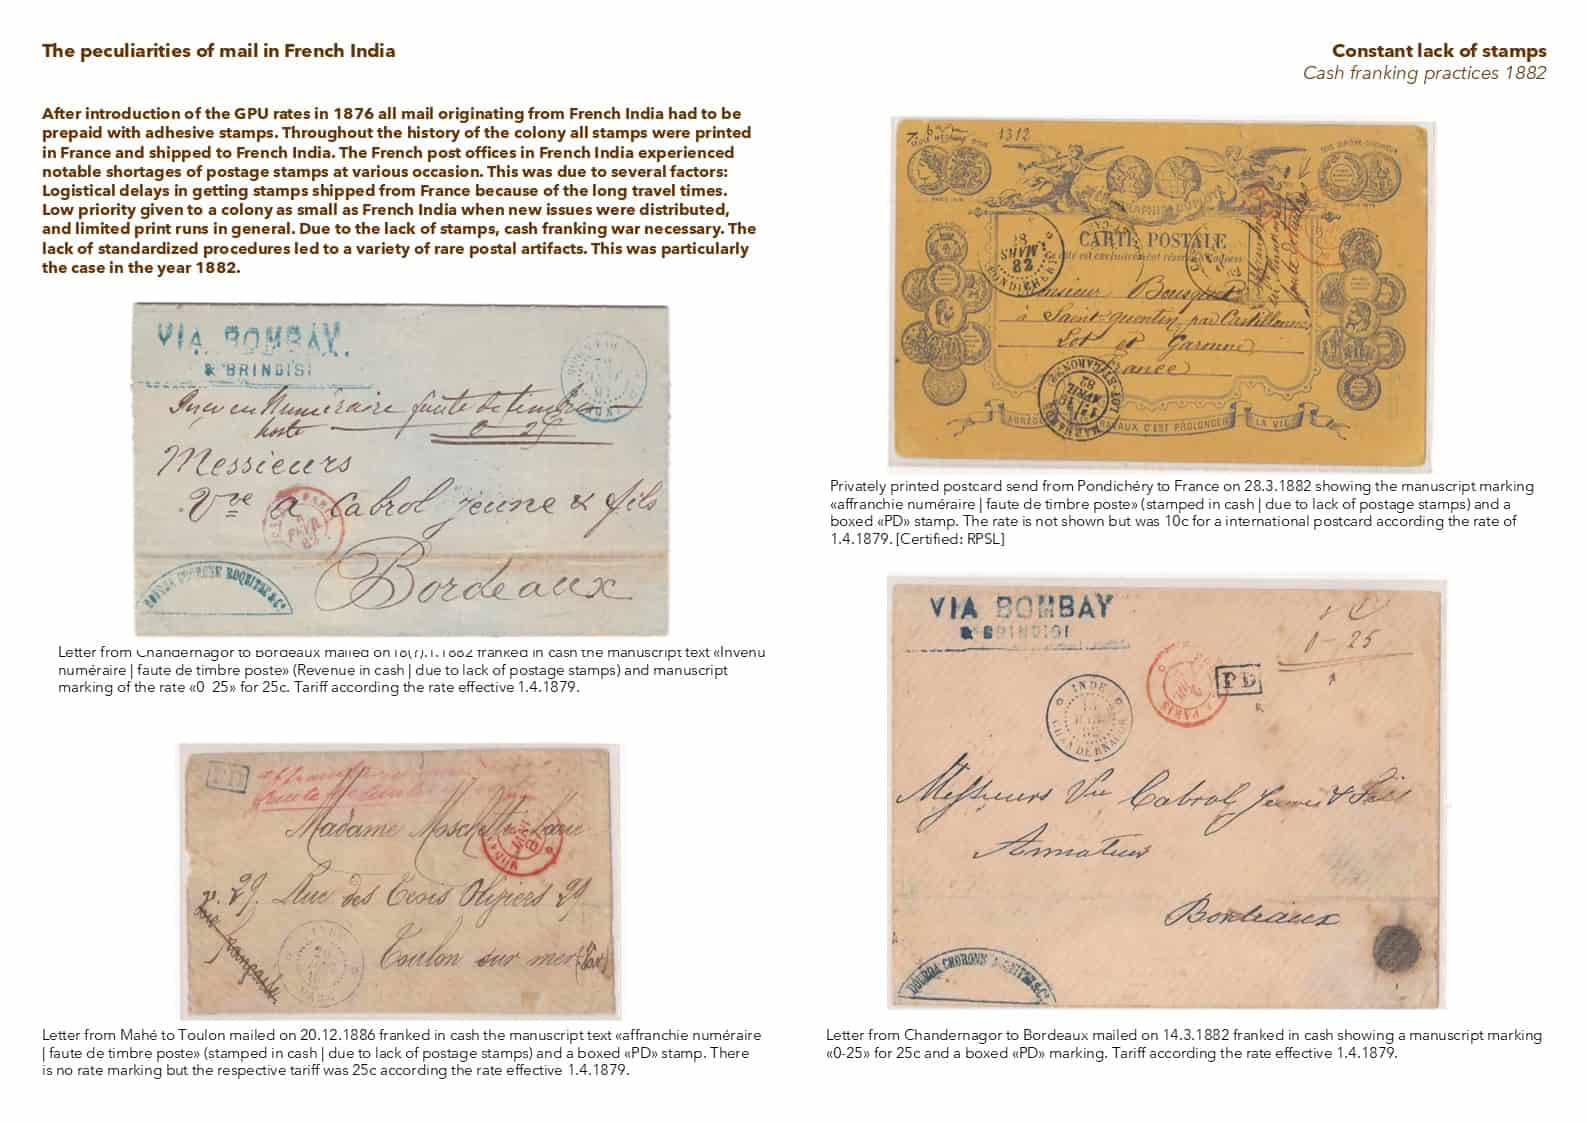 The peculiarities of mail in French India
Constant lack of stamps
Cash franking practices 1882
After introduction of the GPU rates in 1876 all mail originating from French India had to be
prepaid with adhesive stamps. Throughout the history of the colony all stamps were printed
in France and shipped to French India. The French post offices in French India experienced
notable shortages of postage stamps at various occasion. This was due to several factors:
Logistical delays in getting stamps shipped from France because of the long travel times.
Low priority given to a colony as small as French India when new issues were distributed,
and limited print runs in general. Due to the lack of stamps, cash franking war necessary. The
lack of standardized procedures led to a variety of rare postal artifacts. This was particularly
the case in the year 1882.
VIA BOMBAY.
& BRINDISI
faute de timbre
poste 0 25
Messieurs
Vve a Cabrol jeune & fils
Bordeaux
Letter from Chandernagor to Bordeaux mailed on 18(?).1.1882 franked in cash the manuscript text «Invenu
numéraire | faute de timbre poste» (Revenue in cash | due to lack of postage stamps) and manuscript
marking of the rate «0 25» for 25c. Tariff according the rate effective 1.4.1879.
PD
Madame
29. Rue des Trois Oliviers 29
Toulon sur mer (Var)
INDE
MAHE
Letter from Mahé to Toulon mailed on 20.12.1886 franked in cash the manuscript text «affranchie numéraire
| faute de timbre poste» (stamped in cash | due to lack of postage stamps) and a boxed «PD» stamp. There
is no rate marking but the respective tariff was 25c according the rate effective 1.4.1879.
1312
CARTE POSTALE
PONDICHERY
MARS
82
Monsieur Bousquet
à Saint-Quentin, par Castillonnes
Lot et Garonne
France
MARMANDE
AVRIL
82
TRAVAUX C'EST PROLONGER LA VIE
Privately printed postcard send from Pondichéry to France on 28.3.1882 showing the manuscript marking
«affranchie numéraire | faute de timbre poste» (stamped in cash | due to lack of postage stamps) and a
boxed «PD» stamp. The rate is not shown but was 10c for a international postcard according the rate of
1.4.1879. [Certified: RPSL]
VIA BOMBAY
& BRINDISI
0-25
PD
INDE
CHANDERNAGOR
PARIS
Messieurs Vve Cabrol Jeune & Fils
Armateurs
Bordeaux
Letter from Chandernagor to Bordeaux mailed on 14.3.1882 franked in cash showing a manuscript marking
«0-25» for 25c and a boxed «PD» marking. Tariff according the rate effective 1.4.1879.